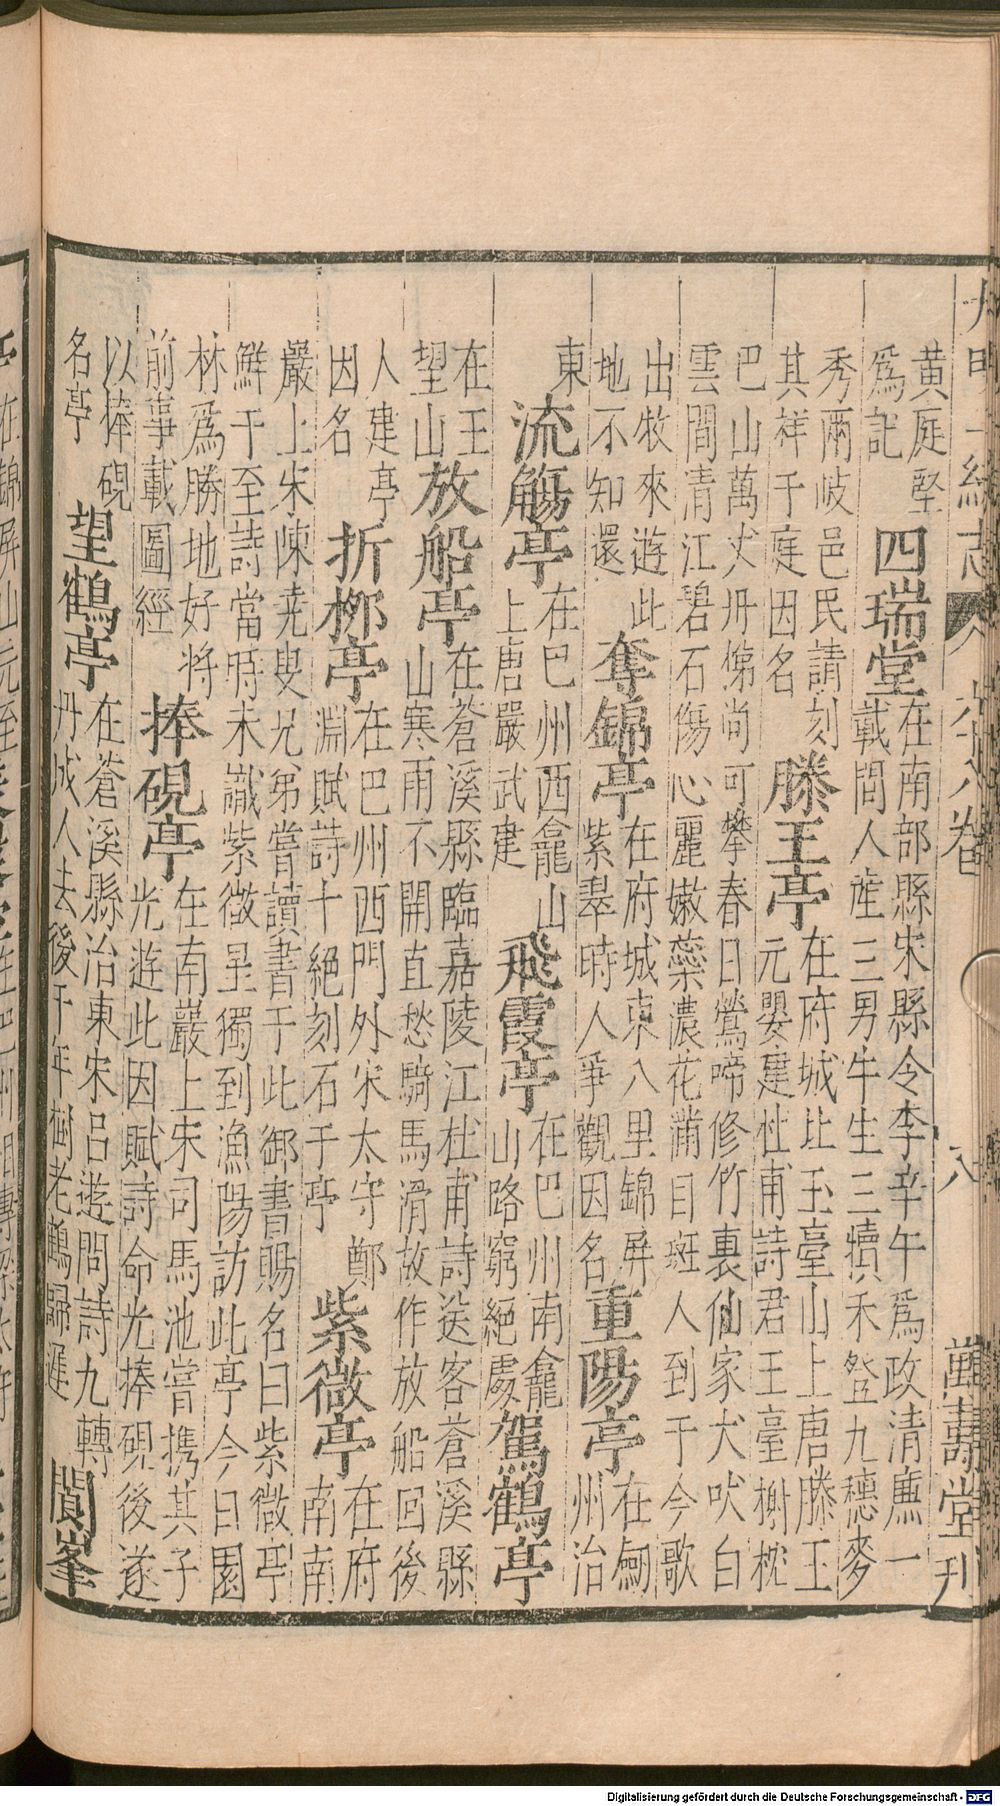 大明一統志
卷
八
萬壽堂刊
黃庭堅
爲記
四瑞堂
在南部縣宋縣令李辛午爲政清亷一
載間人産三男牛生三犢禾登九穗麥
秀兩岐邑民請刻
其祥于庭因名
滕王亭
在府城北玉臺山上唐滕王
元嬰建杜甫詩君王臺榭枕
巴山萬丈丹梯尚可攀春日鶯啼修竹裏仙家犬吠白
雲間清江碧石傷心麗嫩蘂濃花滿目斑人到于今歌
出牧來遊此
地不知還
奪錦亭
在府城東八里錦屏
紫翠時人爭觀因名
重陽亭
在劒
州治
東
流觴亭
在巴州西龕山
上唐嚴武建
飛霞亭
在巴州南龕
山路窮絕處
駕鶴亭
在王
望山
放船亭
在蒼溪縣臨嘉陵江杜甫詩送客蒼溪縣
山寒雨不開直愁騎馬滑故作放船回後
人建亭
因名
折栁亭
在巴州西門外宋太守鄭
淵賦詩十絕刻石于亭
紫微亭
在府
南南
嚴上宋陳堯叟兄弟嘗讀書于此御書賜名曰紫微亭
鮮于至詩當時未識紫微星獨到漁陽訪此亭今日園
林爲勝地好將
前事載圖經
捧硯亭
在南巖上宋司馬池嘗携其子
光遊此因賦詩命光捧硯後遂
以捧硯
名亭
望鶴亭
在蒼溪縣治東宋呂遊問詩九轉
丹成人去後千年樹老鶴歸遲
閬峯
Digitalisierung gefördert durch die Deutsche Forschungsgemeinschaft - DFG